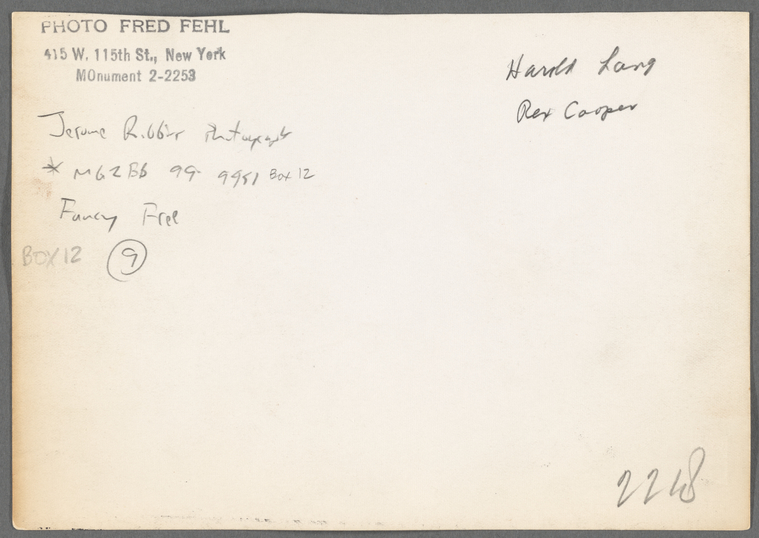 PHOTO FRED FEHL
415 W. 115th St., New York
MOnument 2-2253
Harold Lang
Rex Cooper
Jerome Robbins Photographs
* MGZBb 99- 9951 Box 12
Fancy Free
BOX 12 9